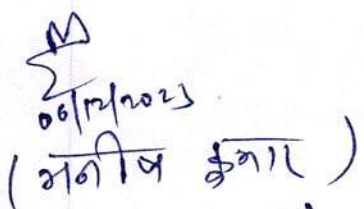 06/12/2023
(मनीष कुमार)